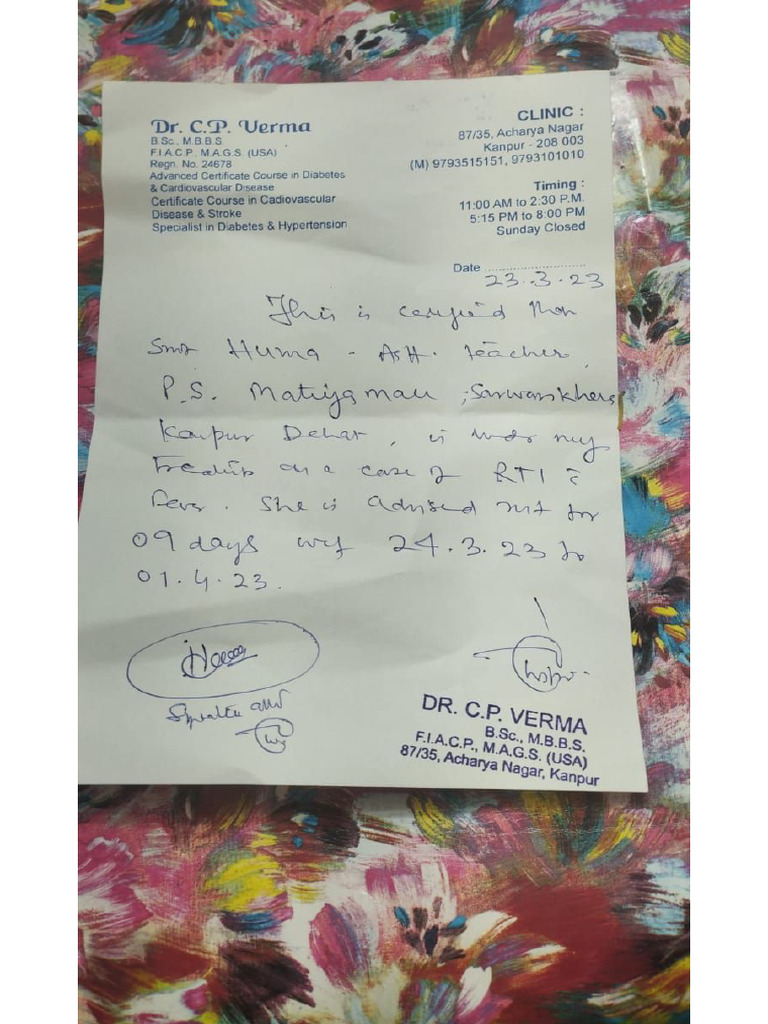 Dr. C.P. Verma
B.Sc., M.B.B.S.
F.I.A.C.P., M.A.G.S. (USA)
Regn. No. 24678
Advanced Certificate Course in Diabetes
& Cardiovascular Disease
Certificate Course in Cadiovascular
Disease & Stroke
Specialist in Diabetes & Hypertension
CLINIC :
87/35, Acharya Nagar
Kanpur - 208 003
(M) 9793515151, 9793101010
Timing :
11:00 AM to 2:30 P.M.
5:15 PM to 8:00 PM
Sunday Closed
Date ..............................
23.3.23
This is certified that
Smt Huma - Astt. teacher
P.S. Matiyamau ; Sarwankhera
Kanpur Dehat, is under my
treatment as a case of RTI c̄
fever. She is advised rest for
09 days wef 24.3.23 to
01.4.23.
Huma
DR. C.P. VERMA
B.Sc., M.B.B.S.
F.I.A.C.P., M.A.G.S. (USA)
87/35, Acharya Nagar, Kanpur